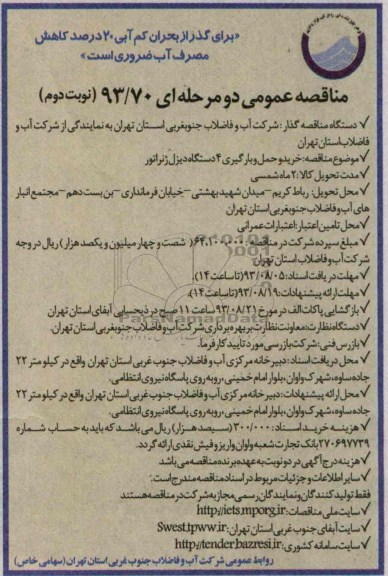 «برای گذر از بحران کم آبی ۲۰ درصد کاهش
مصرف آب ضروری است»
مناقصه عمومی دو مرحله ای ۹۳/۷۰ (نوبت دوم)
✓ دستگاه مناقصه گذار: شرکت آب و فاضلاب جنوبغربی استان تهران به نمایندگی از شرکت آب و
فاضلاب استان تهران
✓ موضوع مناقصه: خرید و حمل و بارگیری ۴ دستگاه دیزل ژنراتور
✓ مدت تحویل کالا: ۲ ماه شمسی
✓ محل تحویل: رباط کریم - میدان شهید بهشتی - خیابان فرمانداری - بن بست دهم - مجتمع انبار
های آب و فاضلاب جنوبغربی استان تهران
✓ محل تامین اعتبار: اعتبارات عمرانی
✓ مبلغ سپرده شرکت در مناقصه: ۶۴,۱۰۰,۰۰۰ ( شصت و چهار میلیون و یکصد هزار) ریال در وجه
شرکت آب و فاضلاب استان تهران
✓ مهلت دریافت اسناد: ۹۳/۰۸/۰۵ (تا ساعت ۱۴).
✓ مهلت ارائه پیشنهادات: ۹۳/۰۸/۱۹ (تا ساعت ۱۴).
✓ بازگشایی پاکات الف در مورخ ۹۳/۰۸/۲۱ ساعت ۱۱ صبح در ذیحسابی آبفای استان تهران
✓ دستگاه نظارت: معاونت نظارت بر بهره برداری شرکت آب و فاضلاب جنوبغربی استان تهران
✓ بازرس فنی: شرکت بازرسی مورد تأیید کارفرما.
✓ محل دریافت اسناد: دبیرخانه مرکزی آب و فاضلاب جنوب غربی استان تهران واقع در کیلومتر ۲۲
جاده ساوه، شهرک واوان، بلوار امام خمینی، روبه روی پاسگاه نیروی انتظامی.
✓ محل ارائه پیشنهادات: دبیرخانه مرکزی آب و فاضلاب جنوب غربی استان تهران واقع در کیلومتر ۲۲
جاده ساوه، شهرک واوان، بلوار امام خمینی، روبه روی پاسگاه نیروی انتظامی.
✓ هزینه خرید اسناد: ۳۰۰/۰۰۰ (سیصد هزار) ریال می باشد که باید به حساب شماره
۲۷۰۶۹۷۷۳۹ بانک تجارت شعبه واوان واریز و فیش نقدی ارائه گردد.
✓ هزینه درج آگهی در دو نوبت به عهده برنده مناقصه می باشد
✓ سایر اطلاعات و جزئیات مربوط در اسناد مناقصه مندرج است.
فقط تولید کنندگان و نمایندگان رسمی مجاز به شرکت در مناقصه هستند
✓ سایت ملی مناقصات: http://iets.mporg.ir
✓ سایت آبفای جنوب غربی استان تهران: Swest.tpww.ir
✓ سایت سامانه کشوری: http://tender.bazresi.ir
روابط عمومی شرکت آب و فاضلاب جنوب غربی استان تهران (سهامی خاص)
ParsNamadData